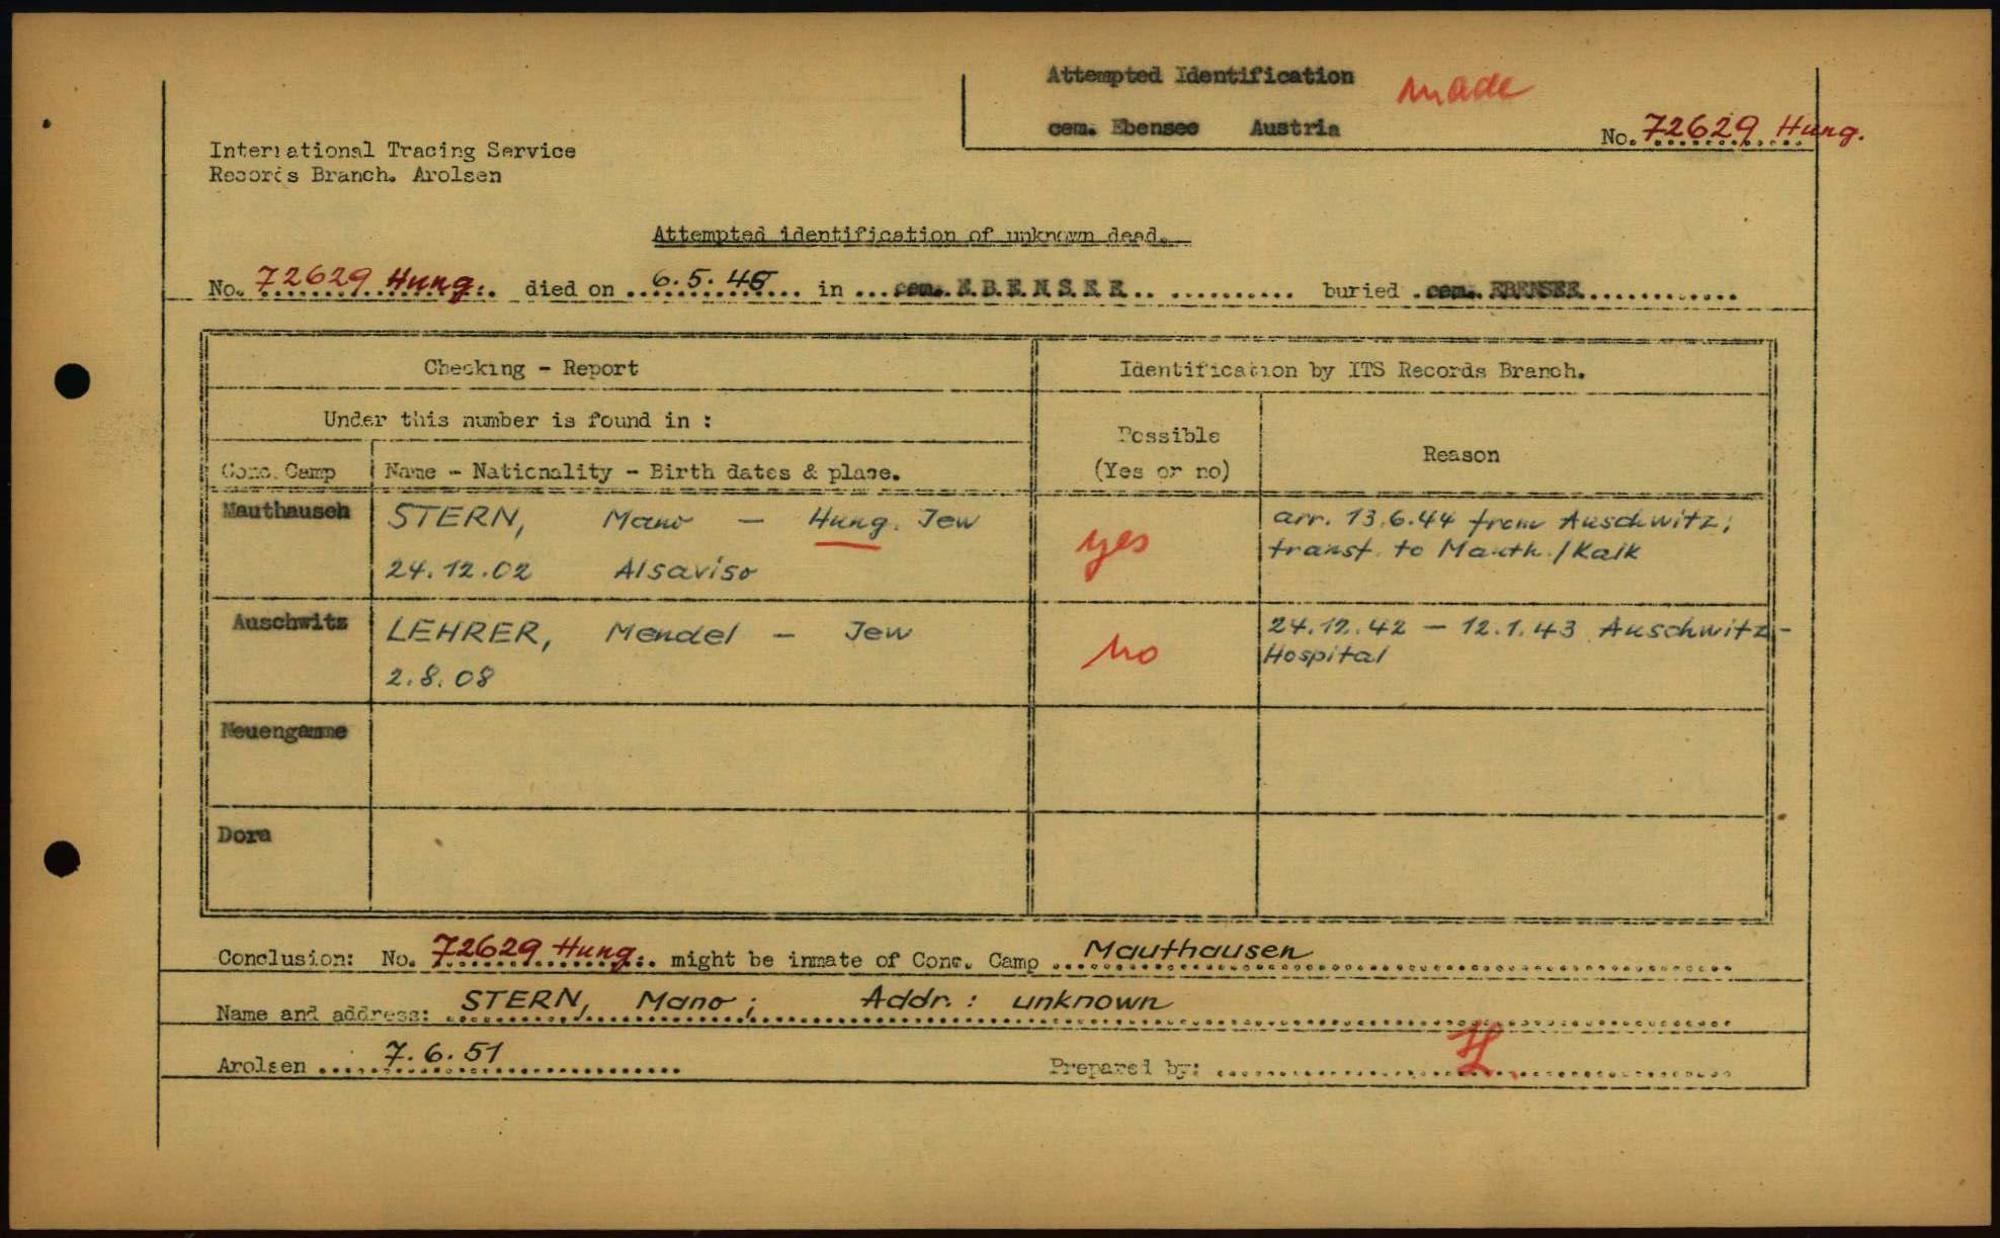 Attempted Identification made
cem. Ebensee Austria No. 72629 Hung.
International Tracing Service
Records Branch. Arolsen
Attempted identification of unknown dead.
No. 72629 Hung. died on 6.5.45 in cem. EBENSEE buried cem. EBENSEE
Checking - Report Identification by ITS Records Branch.
Under this number is found in :
Possible
(Yes or no) Reason
Conc. Camp Name - Nationality - Birth dates & place.
Mauthausen STERN, Mano - Hung. Jew yes arr. 13.6.44 from Auschwitz;
24.12.02 Alsaviso transf. to Mauth./Kalk
Auschwitz LEHRER, Mendel - Jew no 24.12.42 - 12.1.43 Auschwitz-
2.8.08 Hospital
Neuengamme
Dora
Conclusion: No. 72629 Hung. might be inmate of Conc. Camp Mauthausen
Name and address: STERN, Mano; Addr.: unknown
Arolsen 7.6.51 Prepared by: